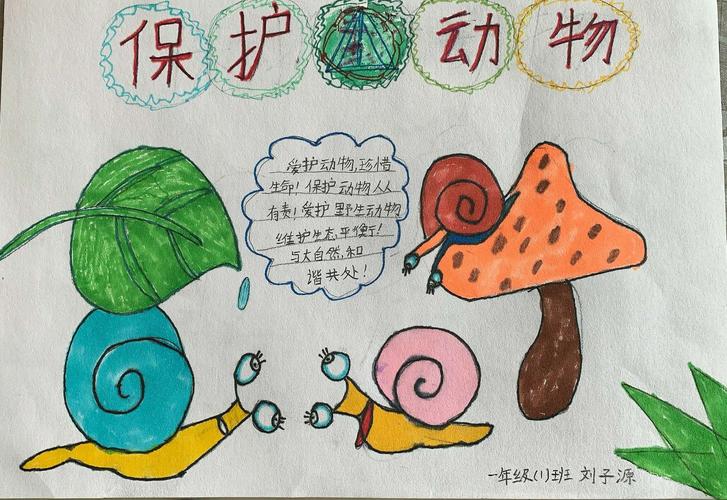 保护动物
爱护动物,珍惜
生命!保护动物人人
有责!爱护野生动物
维护生态平衡!
与大自然,和
谐共处!
一年级(1)班 刘子源